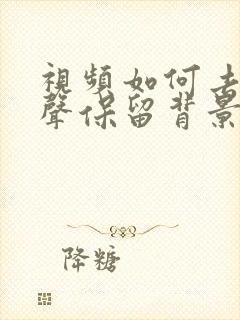 視頻如何去
聲保留背景
降糖